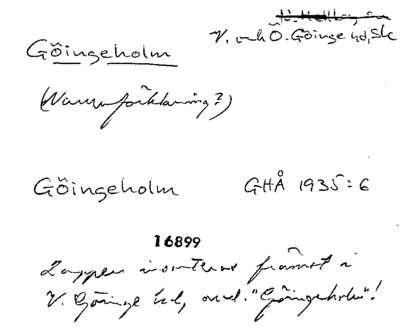 V. och Ö. Göinge hd, Sk
Göingeholm
(Namnförklaring?)
Göingeholm GHÅ 1935:6
16899
Lappen insorteras främst i
V. Göinge hd, avd. "Göingeholm"!